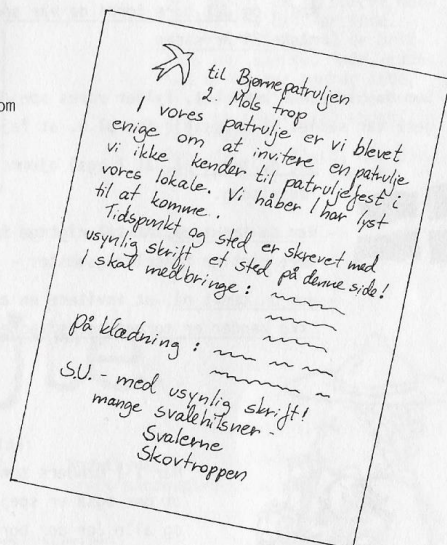 om
til Bjørnepatruljen
2. Mols trop
I vores patrulje er vi blevet
enige om at invitere en patrulje
vi ikke kender til patruljefest i
vores lokale. Vi håber I har lyst
til at komme.
Tidspunkt og sted er skrevet med
usynlig skrift et sted på denne side!
I skal medbringe:
På klædning:
S.U. - med usynlig skrift!
mange svalehilsner -
Svalerne
Skovtroppen